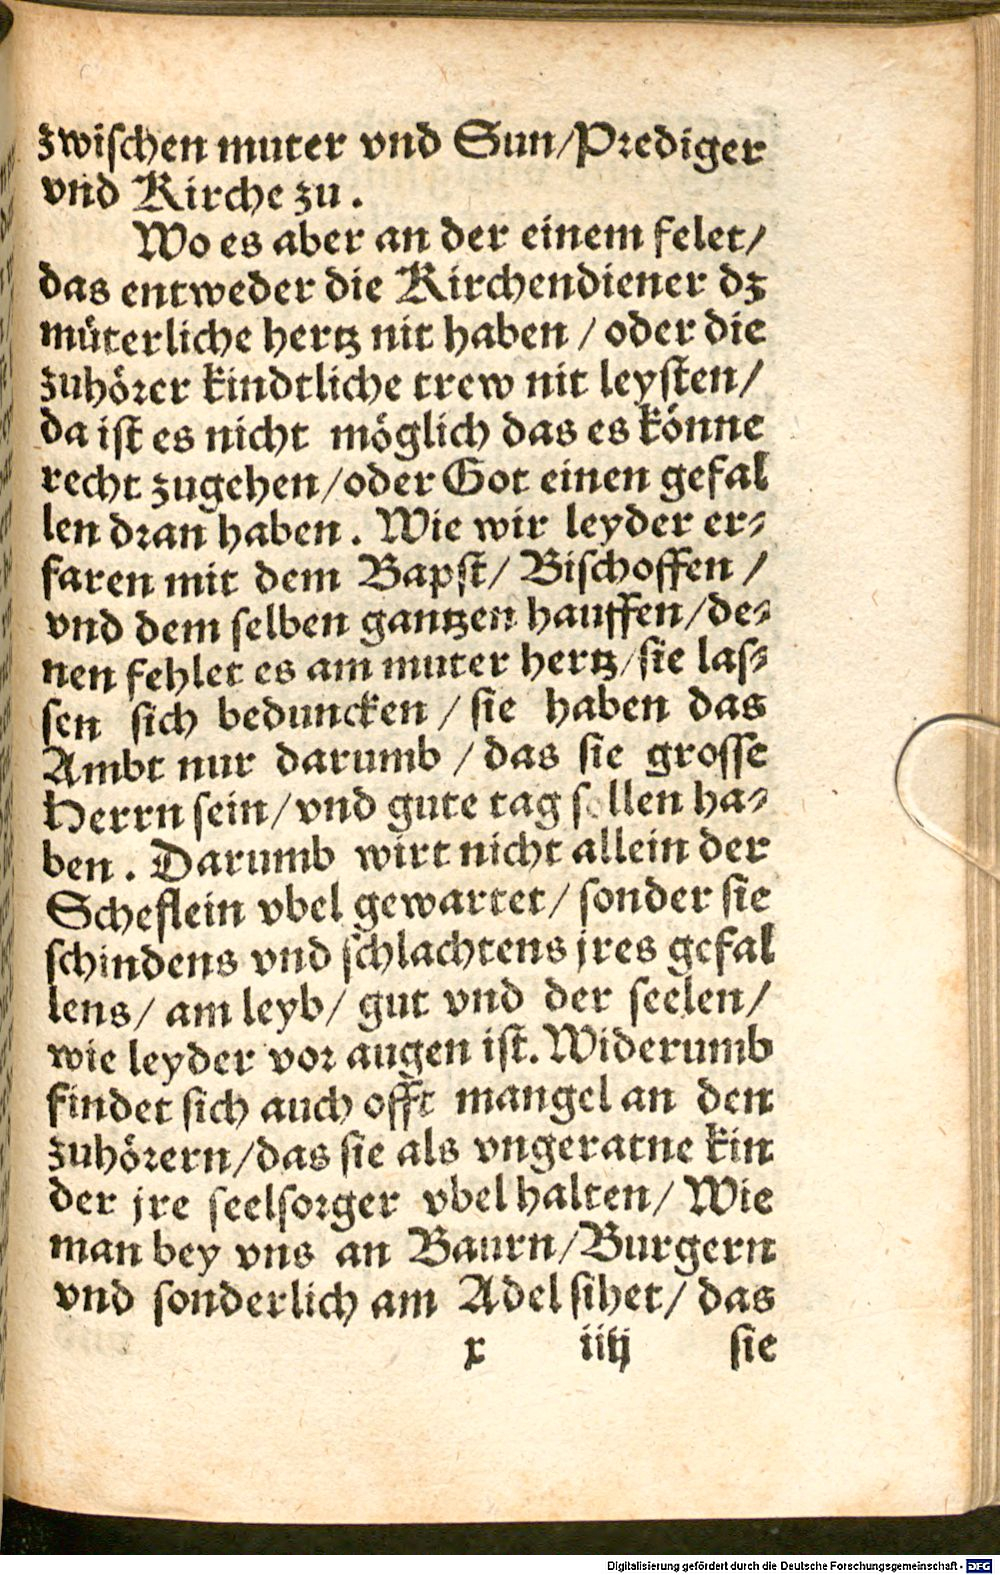 zwischen muter vnd Sun/Prediger
vnd Kirche zu.
Wo es aber an der einem felet/
das entweder die Kirchendiener dz
müterliche hertz nit haben / oder die
zuhörer kindtliche trew nit leysten/
da ist es nicht möglich das es könne
recht zugehen/oder Got einen gefal
len dran haben. Wie wir leyder er-
faren mit dem Bapst/ Bischoffen /
vnd dem selben gantzen hauffen/de-
nen fehlet es am muter hertz/sie las-
sen sich beduncken / sie haben das
Ambt nur darumb / das sie grosse
Herrn sein/vnd gute tag sollen ha-
ben. Darumb wirt nicht allein der
Scheflein vbel gewartet/ sonder sie
schindens vnd schlachtens jres gefal
lens/ am leyb/ gut vnd der seelen/
wie leyder vor augen ist. Widerumb
findet sich auch offt mangel an den
zuhörern/das sie als vngeratne kin
der jre seelsorger vbel halten/ Wie
man bey vns an Baurn/Burgern
vnd sonderlich am Adel sihet/ das
x iiij sie
Digitalisierung gefördert durch die Deutsche Forschungsgemeinschaft - DFG